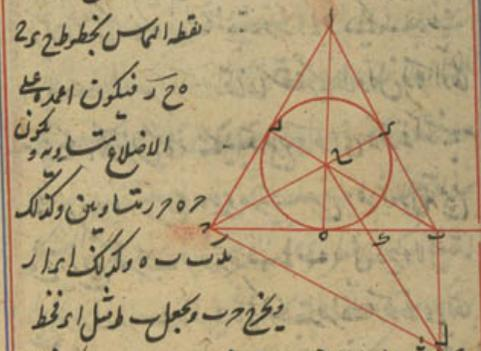 نقطه التماس بخطوط ح ء ح
ه ح ر فيكون اعمدة على
الاضلاع متساوية و يكون
ح ه ح ر متساويين وكذلك
ب ه وكذلك ا ء ا ر
ويخرج ح ب ويجعل ب ط مثل ا ء فخط